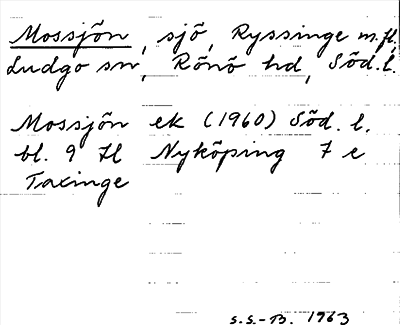 Mossjön, sjö, Ryssinge m.fl.
Ludgo sn, Rönö hd, Söd.l.
Mossjön ek (1960) Söd. l.
bl. 9 H Nyköping 7 e
Taxinge
S.S.-B. 1963